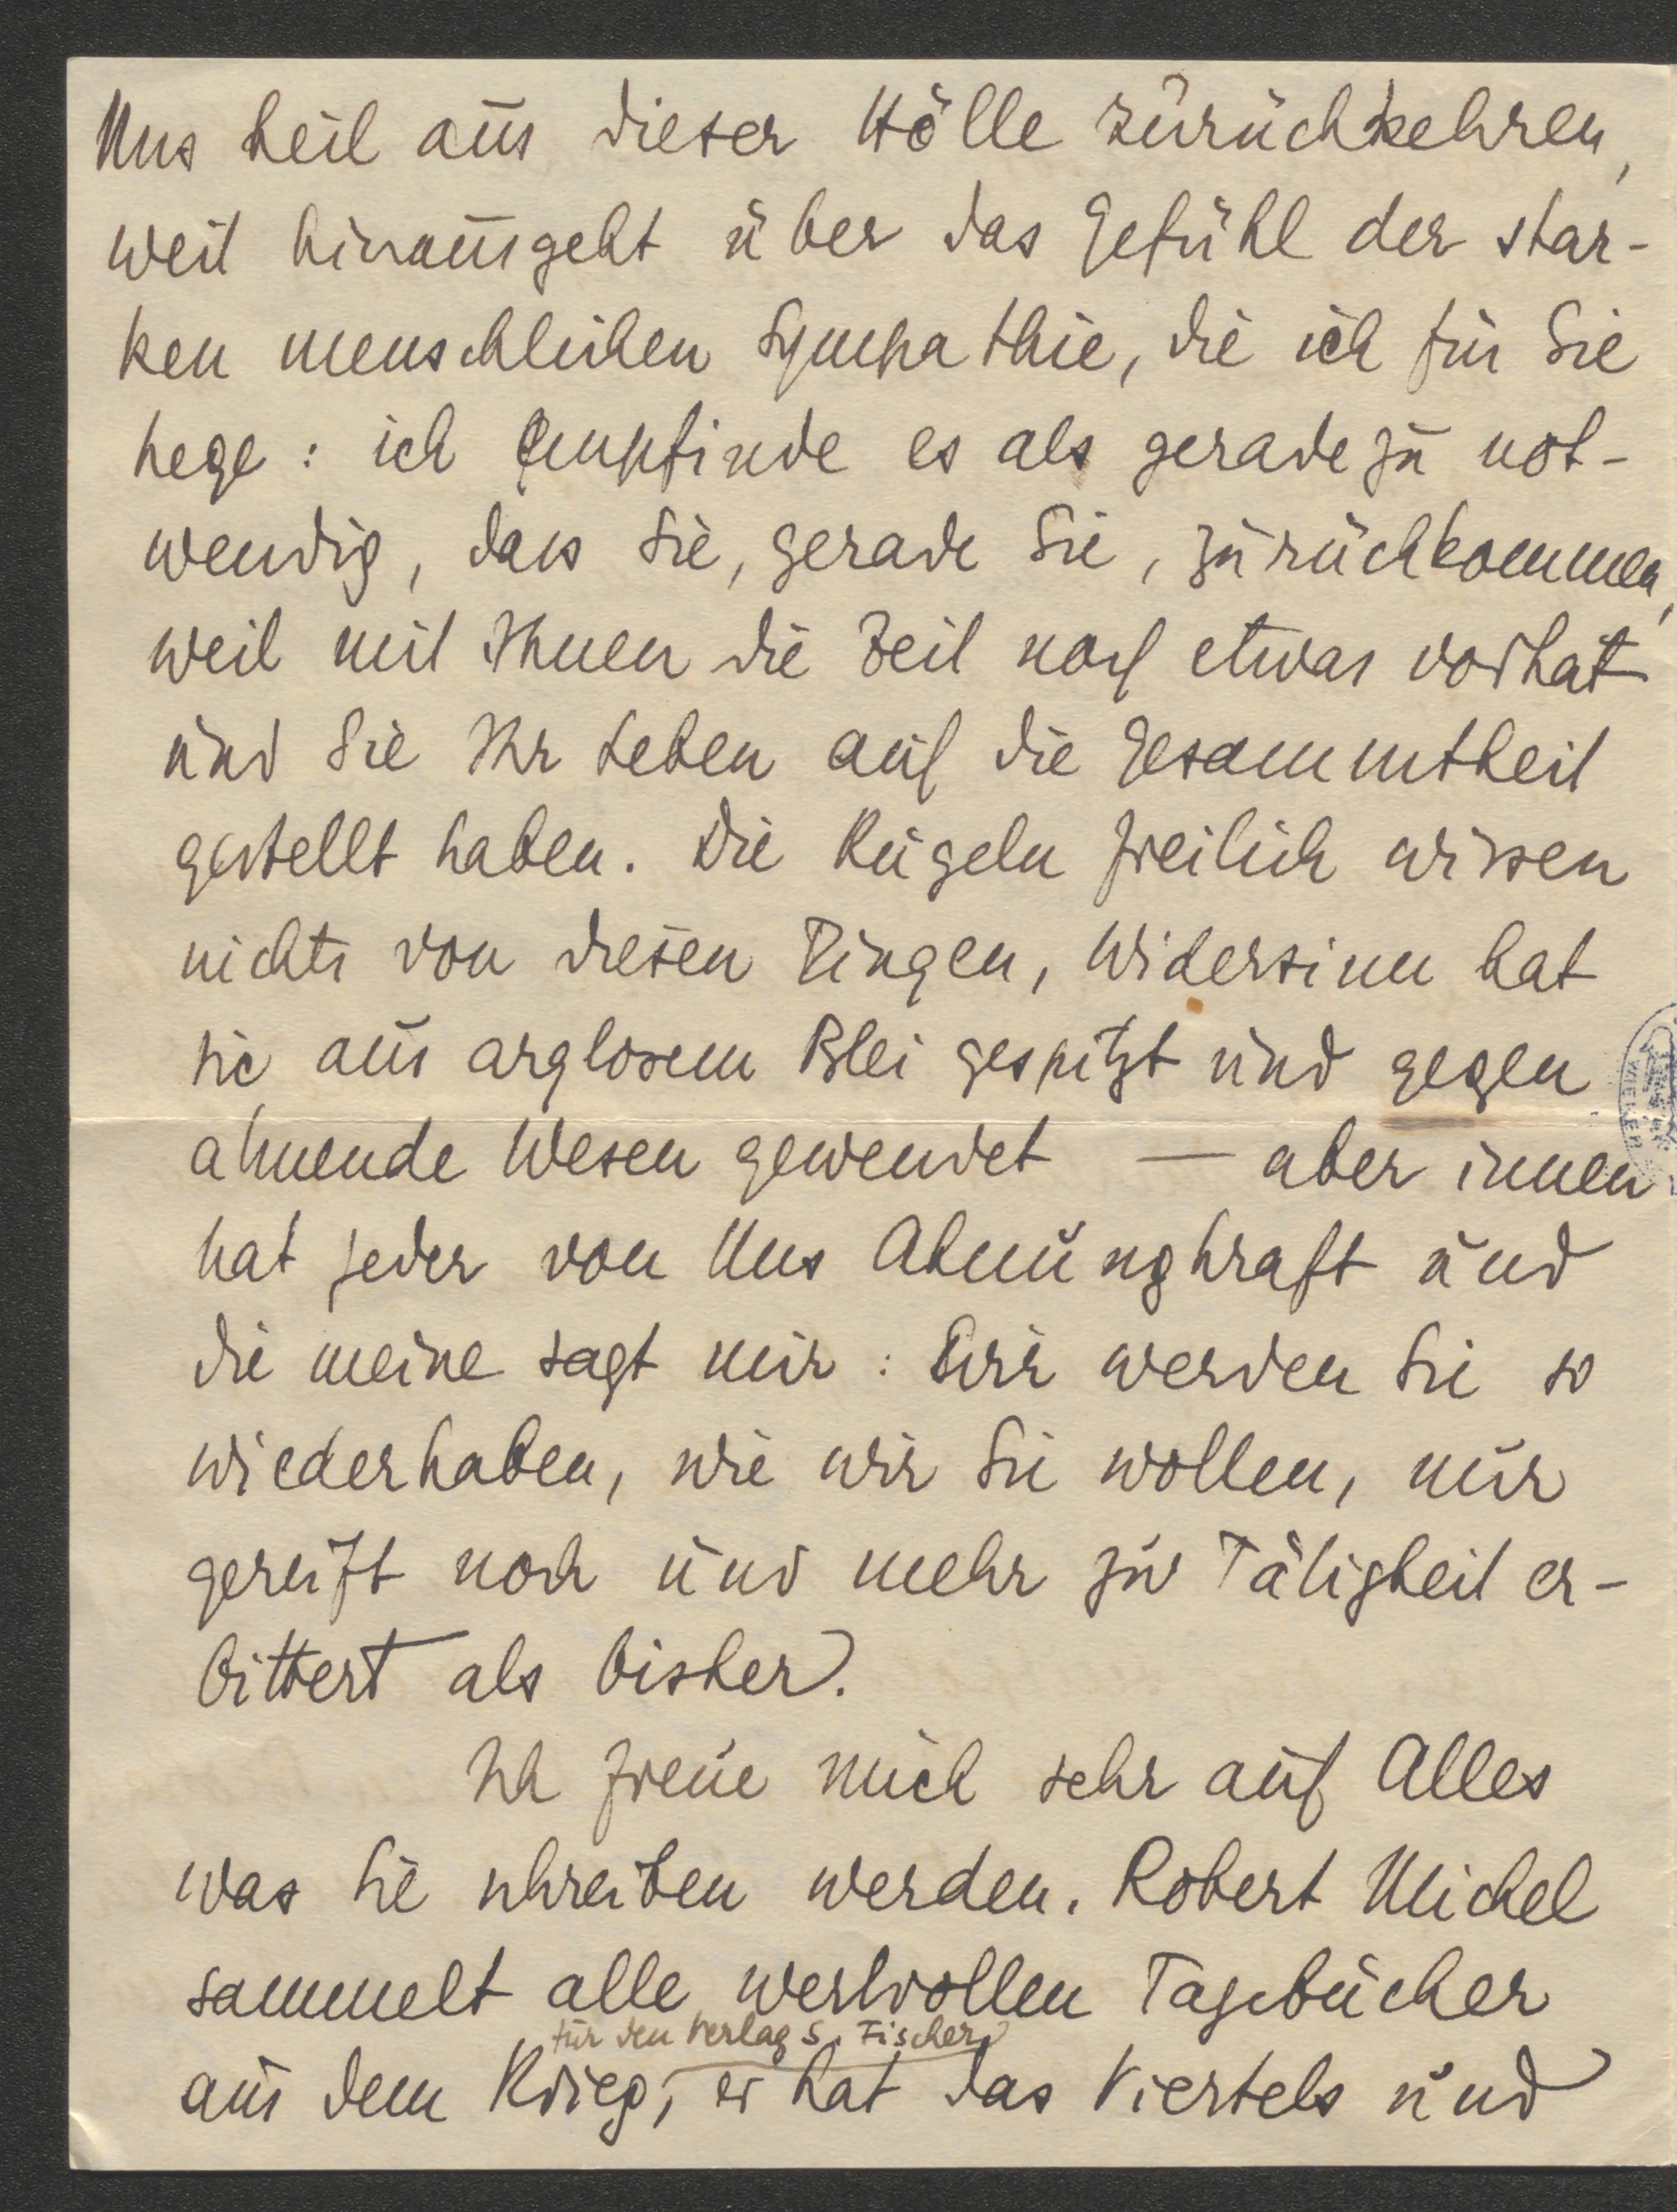 Uns heil aus dieser Hölle zurückkehren,
weit hinausgeht über das Gefühl der star-
ken menschlichen Sympathie, die ich für Sie
hege: ich empfinde es als geradezu not-
wendig, dass Sie, gerade Sie, zurückkommen,
weil mit Ihnen die Zeit noch etwas vorhat
und Sie Ihr Leben auf die Gesammtheit
gestellt haben. Die Kugeln freilich wissen
nichts von diesen Dingen, Widersinn hat
sie aus arglosem Blei gespitzt und gegen
ahnende Wesen gewendet — aber innen
hat jeder von Uns Ahnungkraft und
die meine sagt mir: Wir werden Sie so
wiederhaben, wie wir Sie wollen, nur
gereift noch und mehr zur Tätigkeit er-
bittert als bisher.
Ich freue mich sehr auf Alles
was Sie schreiben werden. Robert Michel
sammelt alle wertvollen Tagebücher
für den Verlag S. Fischer
aus dem Krieg, er hat das Viertels und